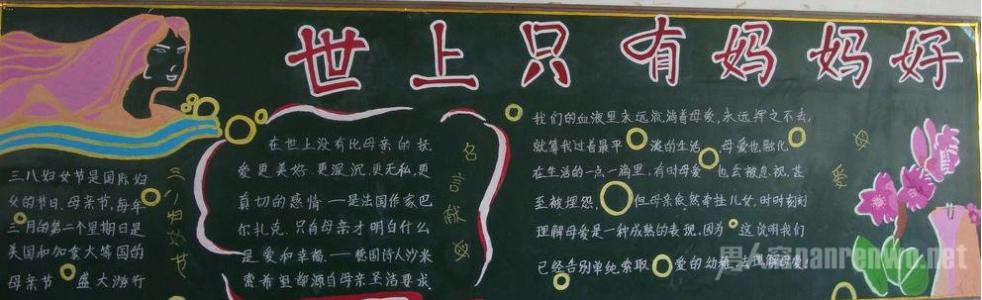 世上只有妈妈好
三八妇女节是国际妇
女的节日、母亲节、每年
三月的第二个星期日是
美国和加拿大等国的
母亲节 盛大游行
三八妇女节
在世上没有比母亲的抚
爱更美好、更深沉、更无私、更
真切的感情——是法国作家巴
尔扎克、只有母亲才明白什么
是爱和幸福、——德国诗人沙米
索希望都源自母亲圣洁要求
名言献母
我们的血液里永远流淌着母爱、永远挥之不去、
就算我过着最平 淡的生活 母爱也融化
在生活的一点一滴里、有时母爱 也会被忽视、甚
至被埋怨、 但母亲依然牵挂儿女、时时刻刻
理解母爱是一种成熟的表现、因为 这说明我们
已经告别单纯索取 爱的幼稚 去理解母爱
母爱
男人窝nanrenwo.net